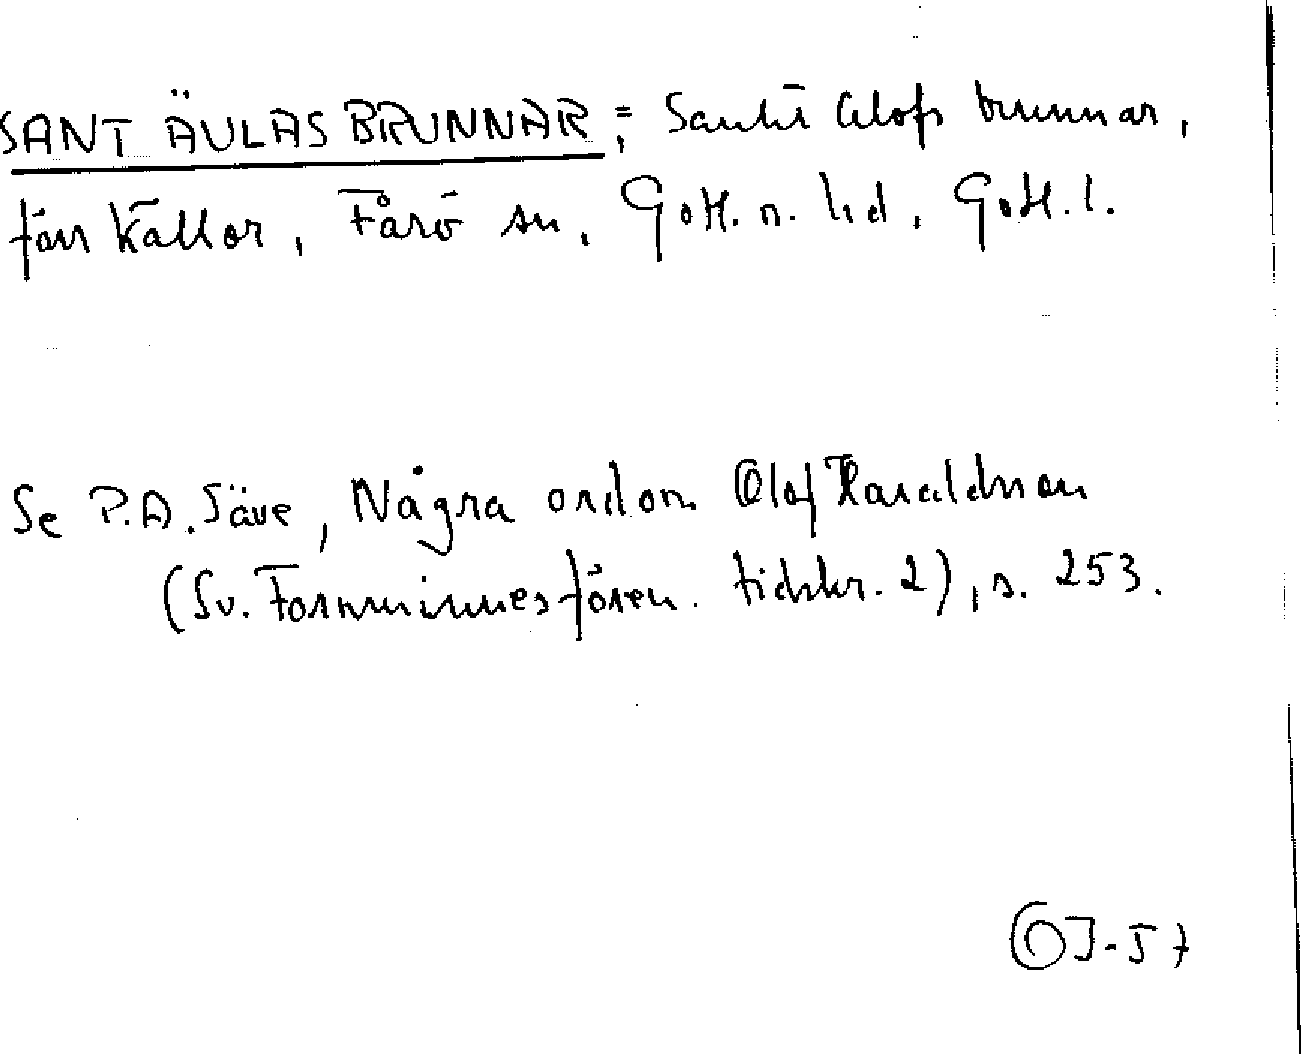 SANT ÄULAS BRUNNAR; Sankt Olofs brunnar,
fyra källor, Fårö sn, Gotl. n. hd, Gotl. l.
Se P.A. Säve, Några ord om Olof Haraldsson
(Sv. Fornminnesfören. tidskr. 2), s. 253.
OJ-57